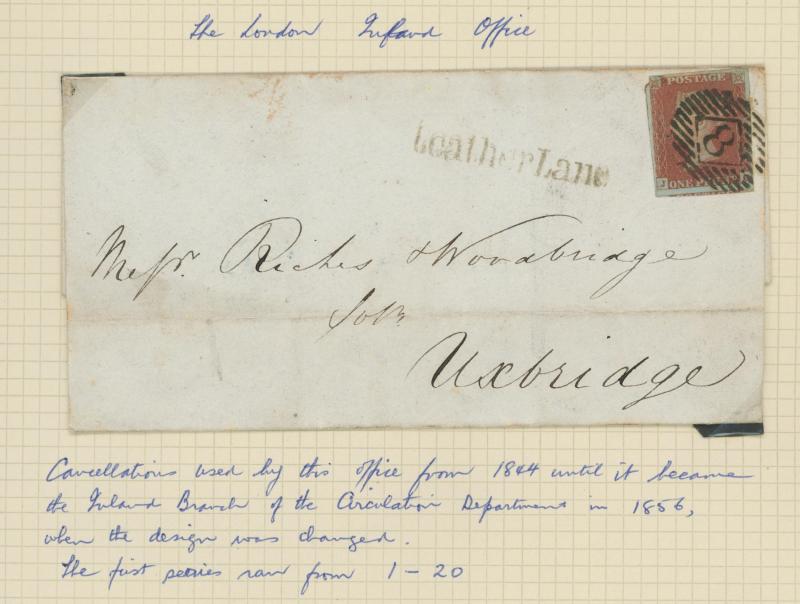 The London Inland Office
POSTAGE
8
J ONE P
Leather Lane
Messrs. Riches & Woodbridge
Solrs
Uxbridge
Cancellations used by this office from 1844 until it became
the Inland Branch of the Circulation Department in 1856,
when the design was changed.
The first series ran from 1 - 20